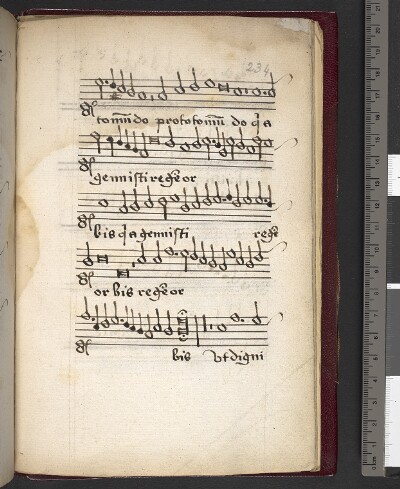 234
tom̄do prototom̄ do q̄ a
genuisti regēor
bis q̄ a genuisti regē
or bis regēor
bis Vt digni